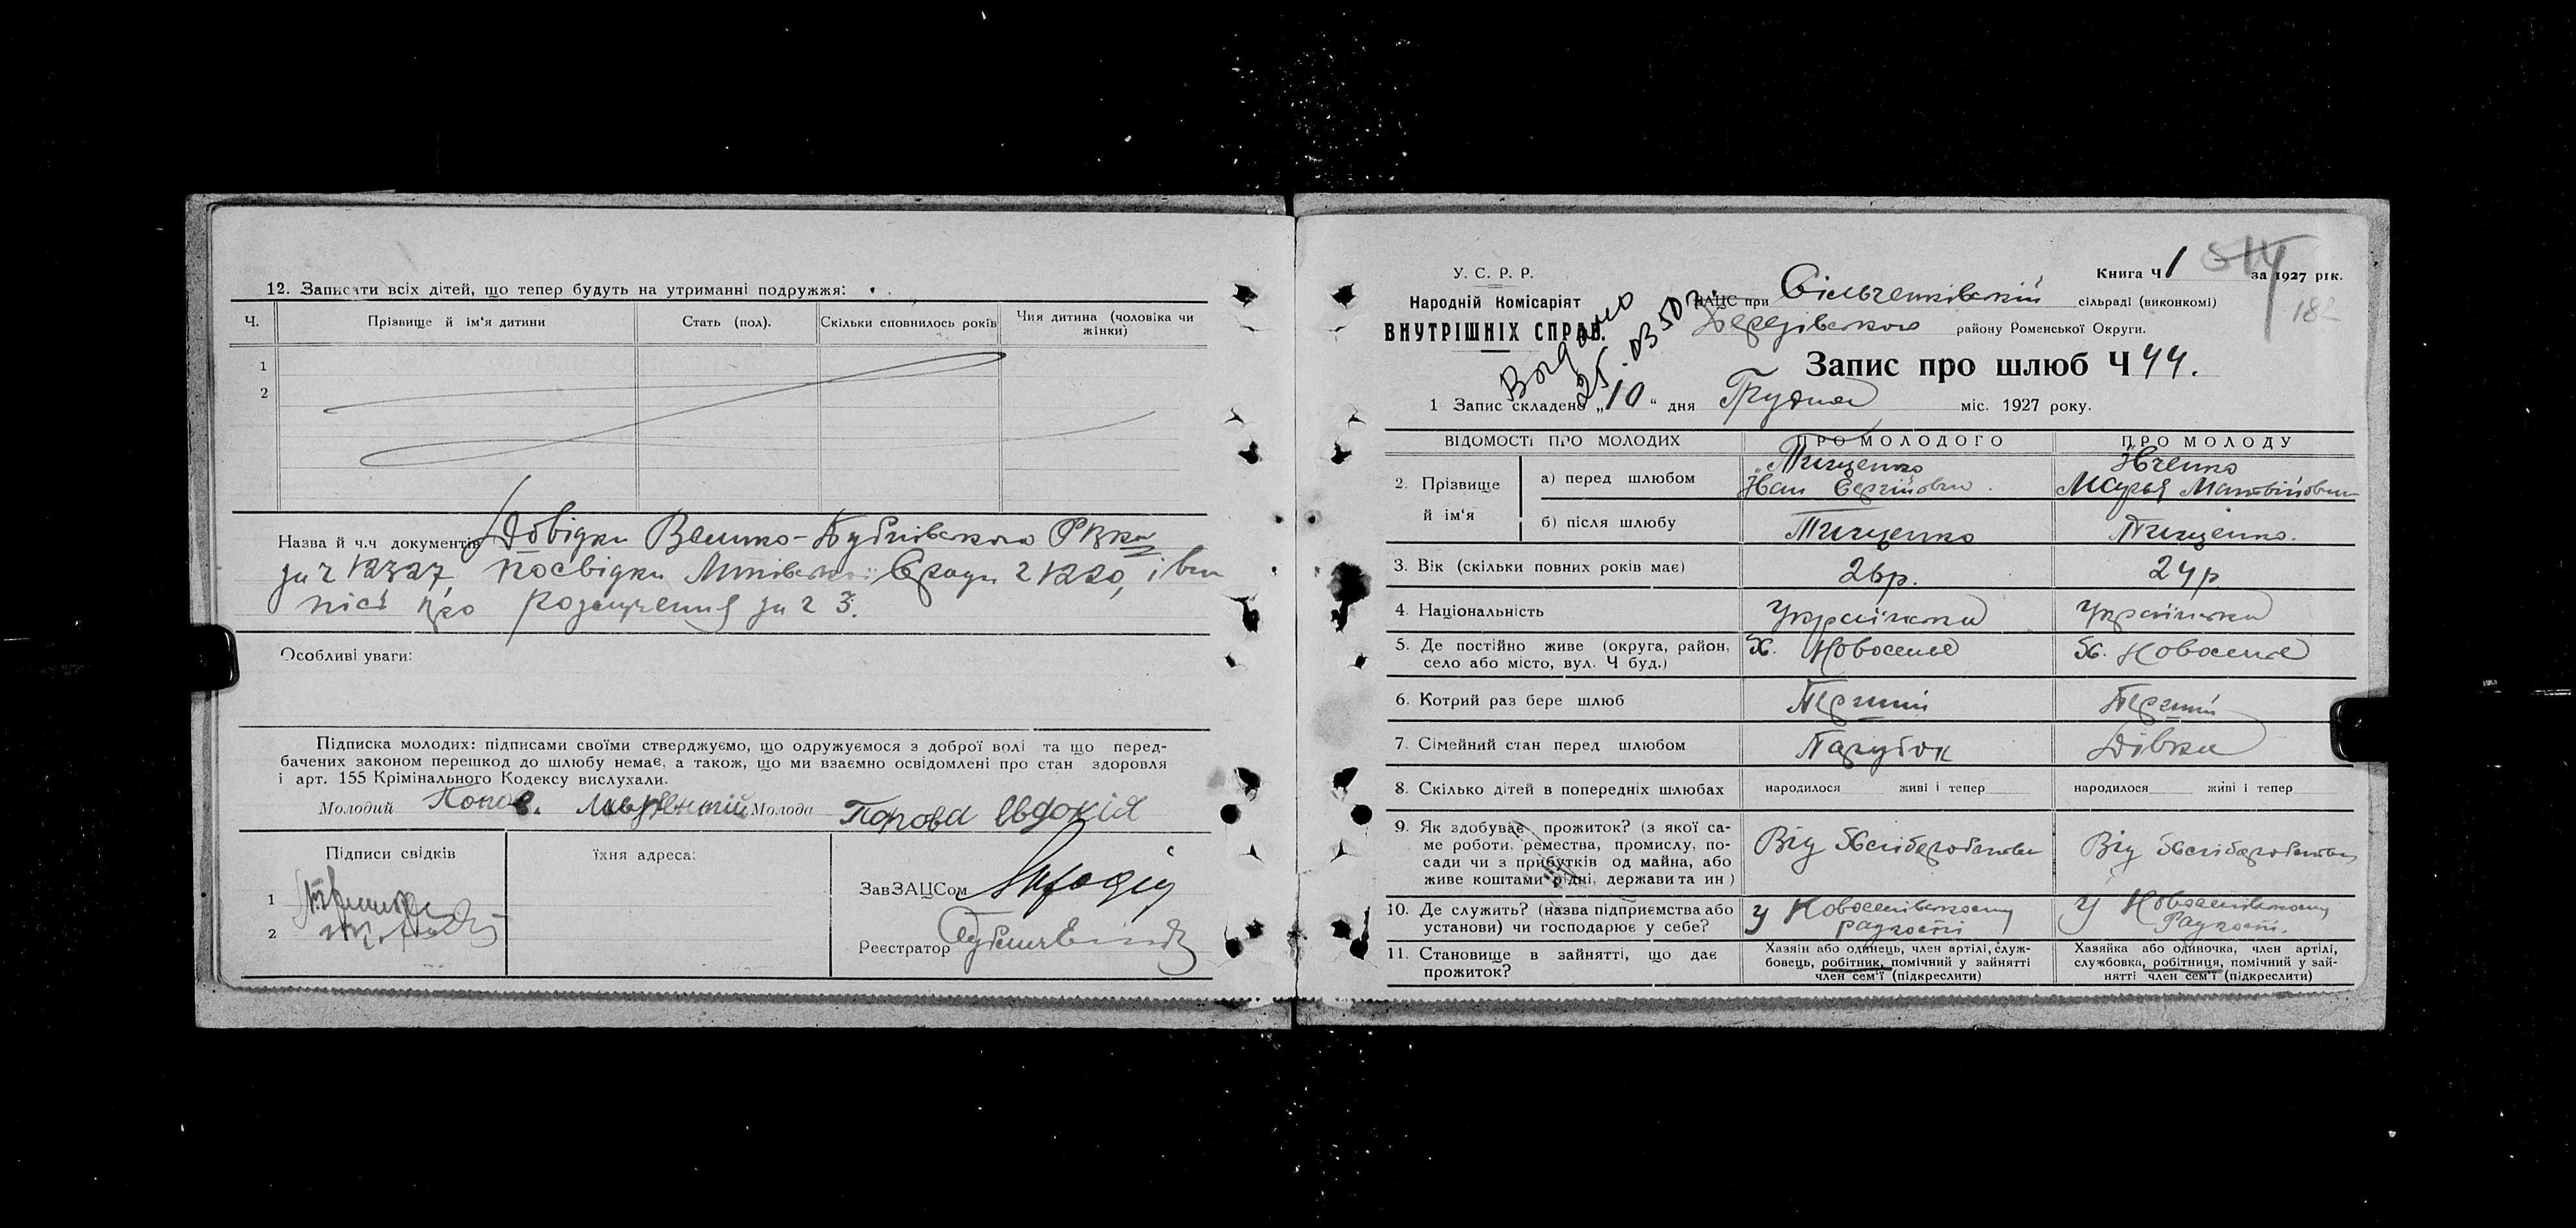 12. Записати всіх дітей, що тепер будуть на утриманні подружжя:
Ч. Прізвище й ім'я дитини Стать (пол). Скільки сповнилось років Чия дитина (чоловіка чи жінки)
1
2
Назва й ч.ч документів Довідки Велико-Бубнівського РВК
за ч 12327, посвідки ради ч 1220, і ви
піс про за ч 3.
Особливі уваги:
Підписка молодих: підписами своїми стверджуємо, що одружуємося з доброї волі та що перед-
бачених законом перешкод до шлюбу немає, а також, що ми взаємно освідомлені про стан здоровля
і арт. 155 Крімінального Кодексу вислухали.
Молодий Попов. Лаврентій Молода Попова Євдокія
Підписи свідків їхня адреса:
1
2
ЗавЗАЦСом
Реєстратор
У. С. Р. Р.
Народній Комісаріят
ВНУТРІШНІХ СПРАВ.
Выдано
25.03.50 г.
Книга Ч 1 за 1927 рік.
514
182
ЗАЦС при Сільченківській сільраді (виконкомі)
району Роменської Округи.
Запис про шлюб Ч 44.
1 Запис складено „10" дня Грудня міс. 1927 року.
ВІДОМОСТІ ПРО МОЛОДИХ ПРО МОЛОДОГО ПРО МОЛОДУ
2. Прізвище й ім'я
а) перед шлюбом Тищенко Іван Сергійович Івченко Марья Матвійовна
б) після шлюбу Тищенко Тищенко.
3. Вік (скільки повних років має) 26р. 24р
4. Національність Українська Українська
5. Де постійно живе (округа, район,
село або місто, вул. Ч буд.) Х. Новоселье Х. Новоселье
6. Котрий раз бере шлюб Перший Перший
7. Сімейний стан перед шлюбом Парубок Дівка
8. Скілько дітей в попередніх шлюбах народилося живі і тепер народилося живі і тепер
9. Як здобуває прожиток? (з якої са-
ме роботи, ремества, промислу, по-
сади чи з прибутків од майна, або
живе коштами рідні, держави та ин) Від Хліборобства Від Хліборобства
10. Де служить? (назва підприємства або
установи) чи господарює у себе? У Новоселівському радгоспі У Новоселівському Радгоспі.
11. Становище в зайнятті, що дає
прожиток?
Хазяїн або одинець, член артілі, служ-
бовець, робітник, помічний у зайнятті
член сем'ї (підкреслити)
Хазяйка або одиночка, член артілі,
службовка, робітниця, помічний у зай-
нятті член сем'ї (підкреслити)